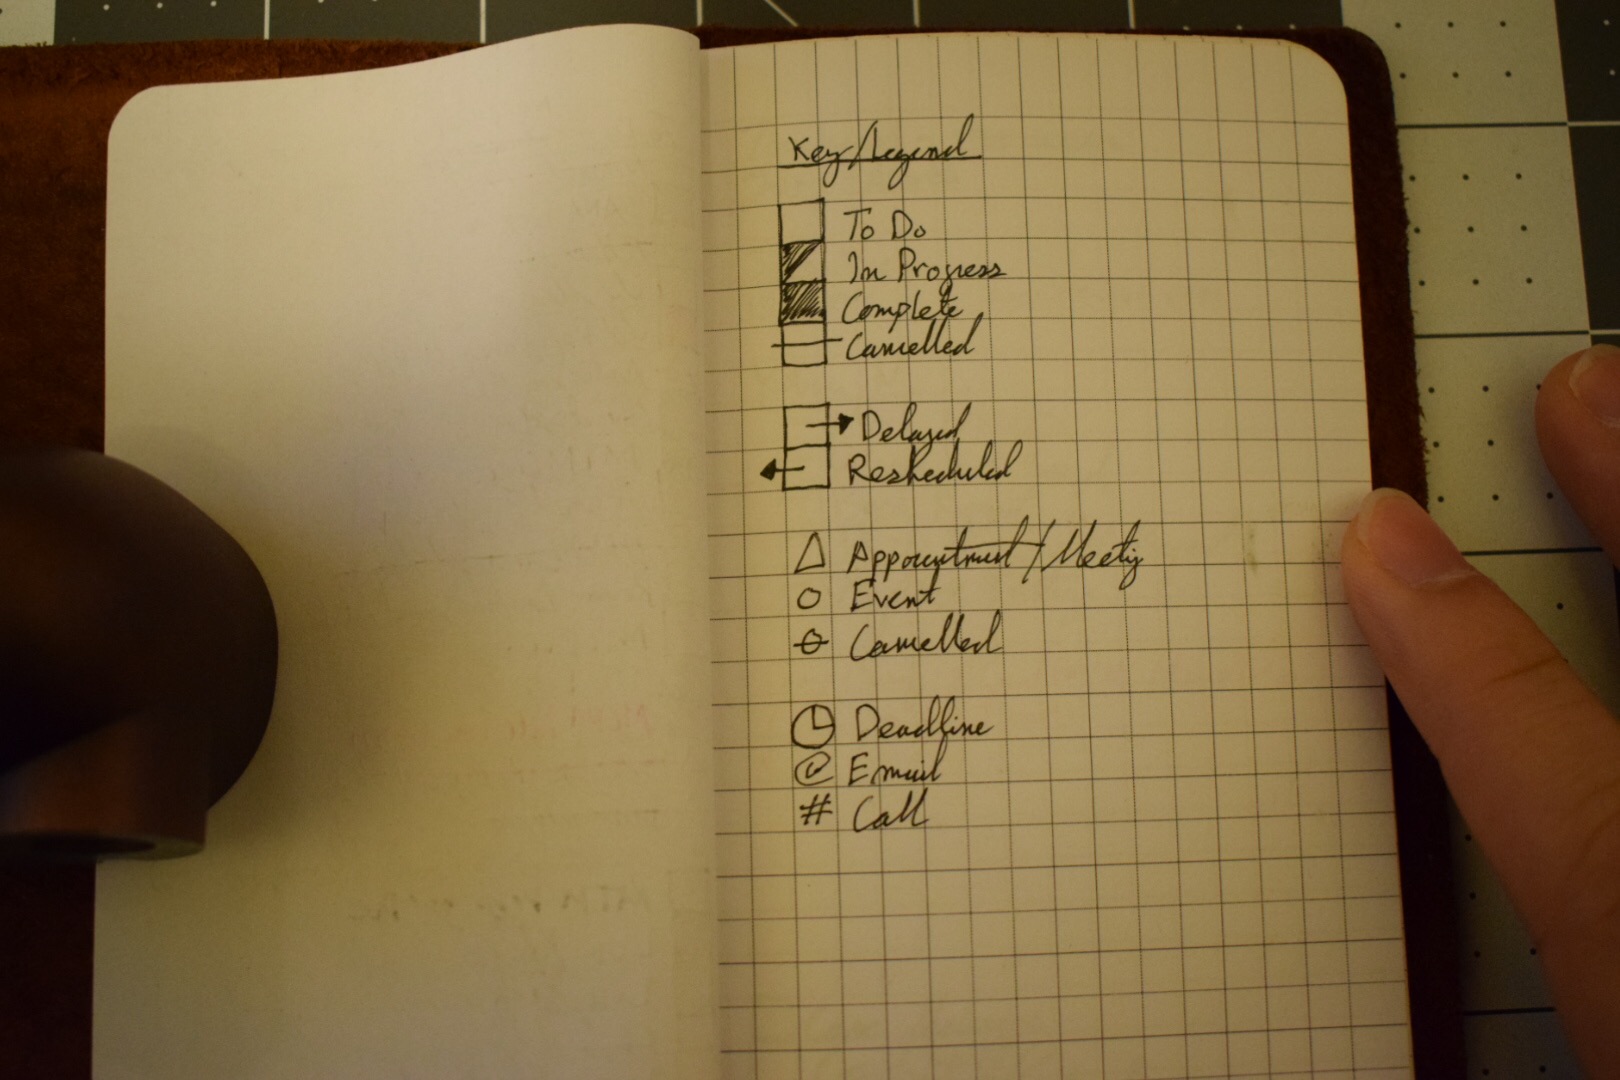 Key/Legend
To Do
In Progress
Complete
Cancelled
Delayed
Resheduled
Appointment/Meeting
Event
Cancelled
Deadline
@ Email
# Call